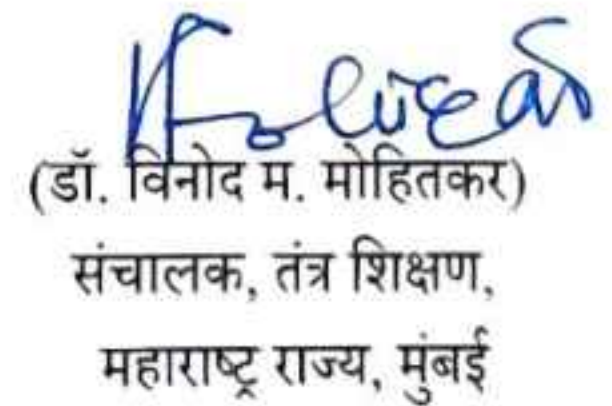 (डॉ. विनोद म. मोहितकर)
संचालक, तंत्र शिक्षण,
महाराष्ट्र राज्य, मुंबई